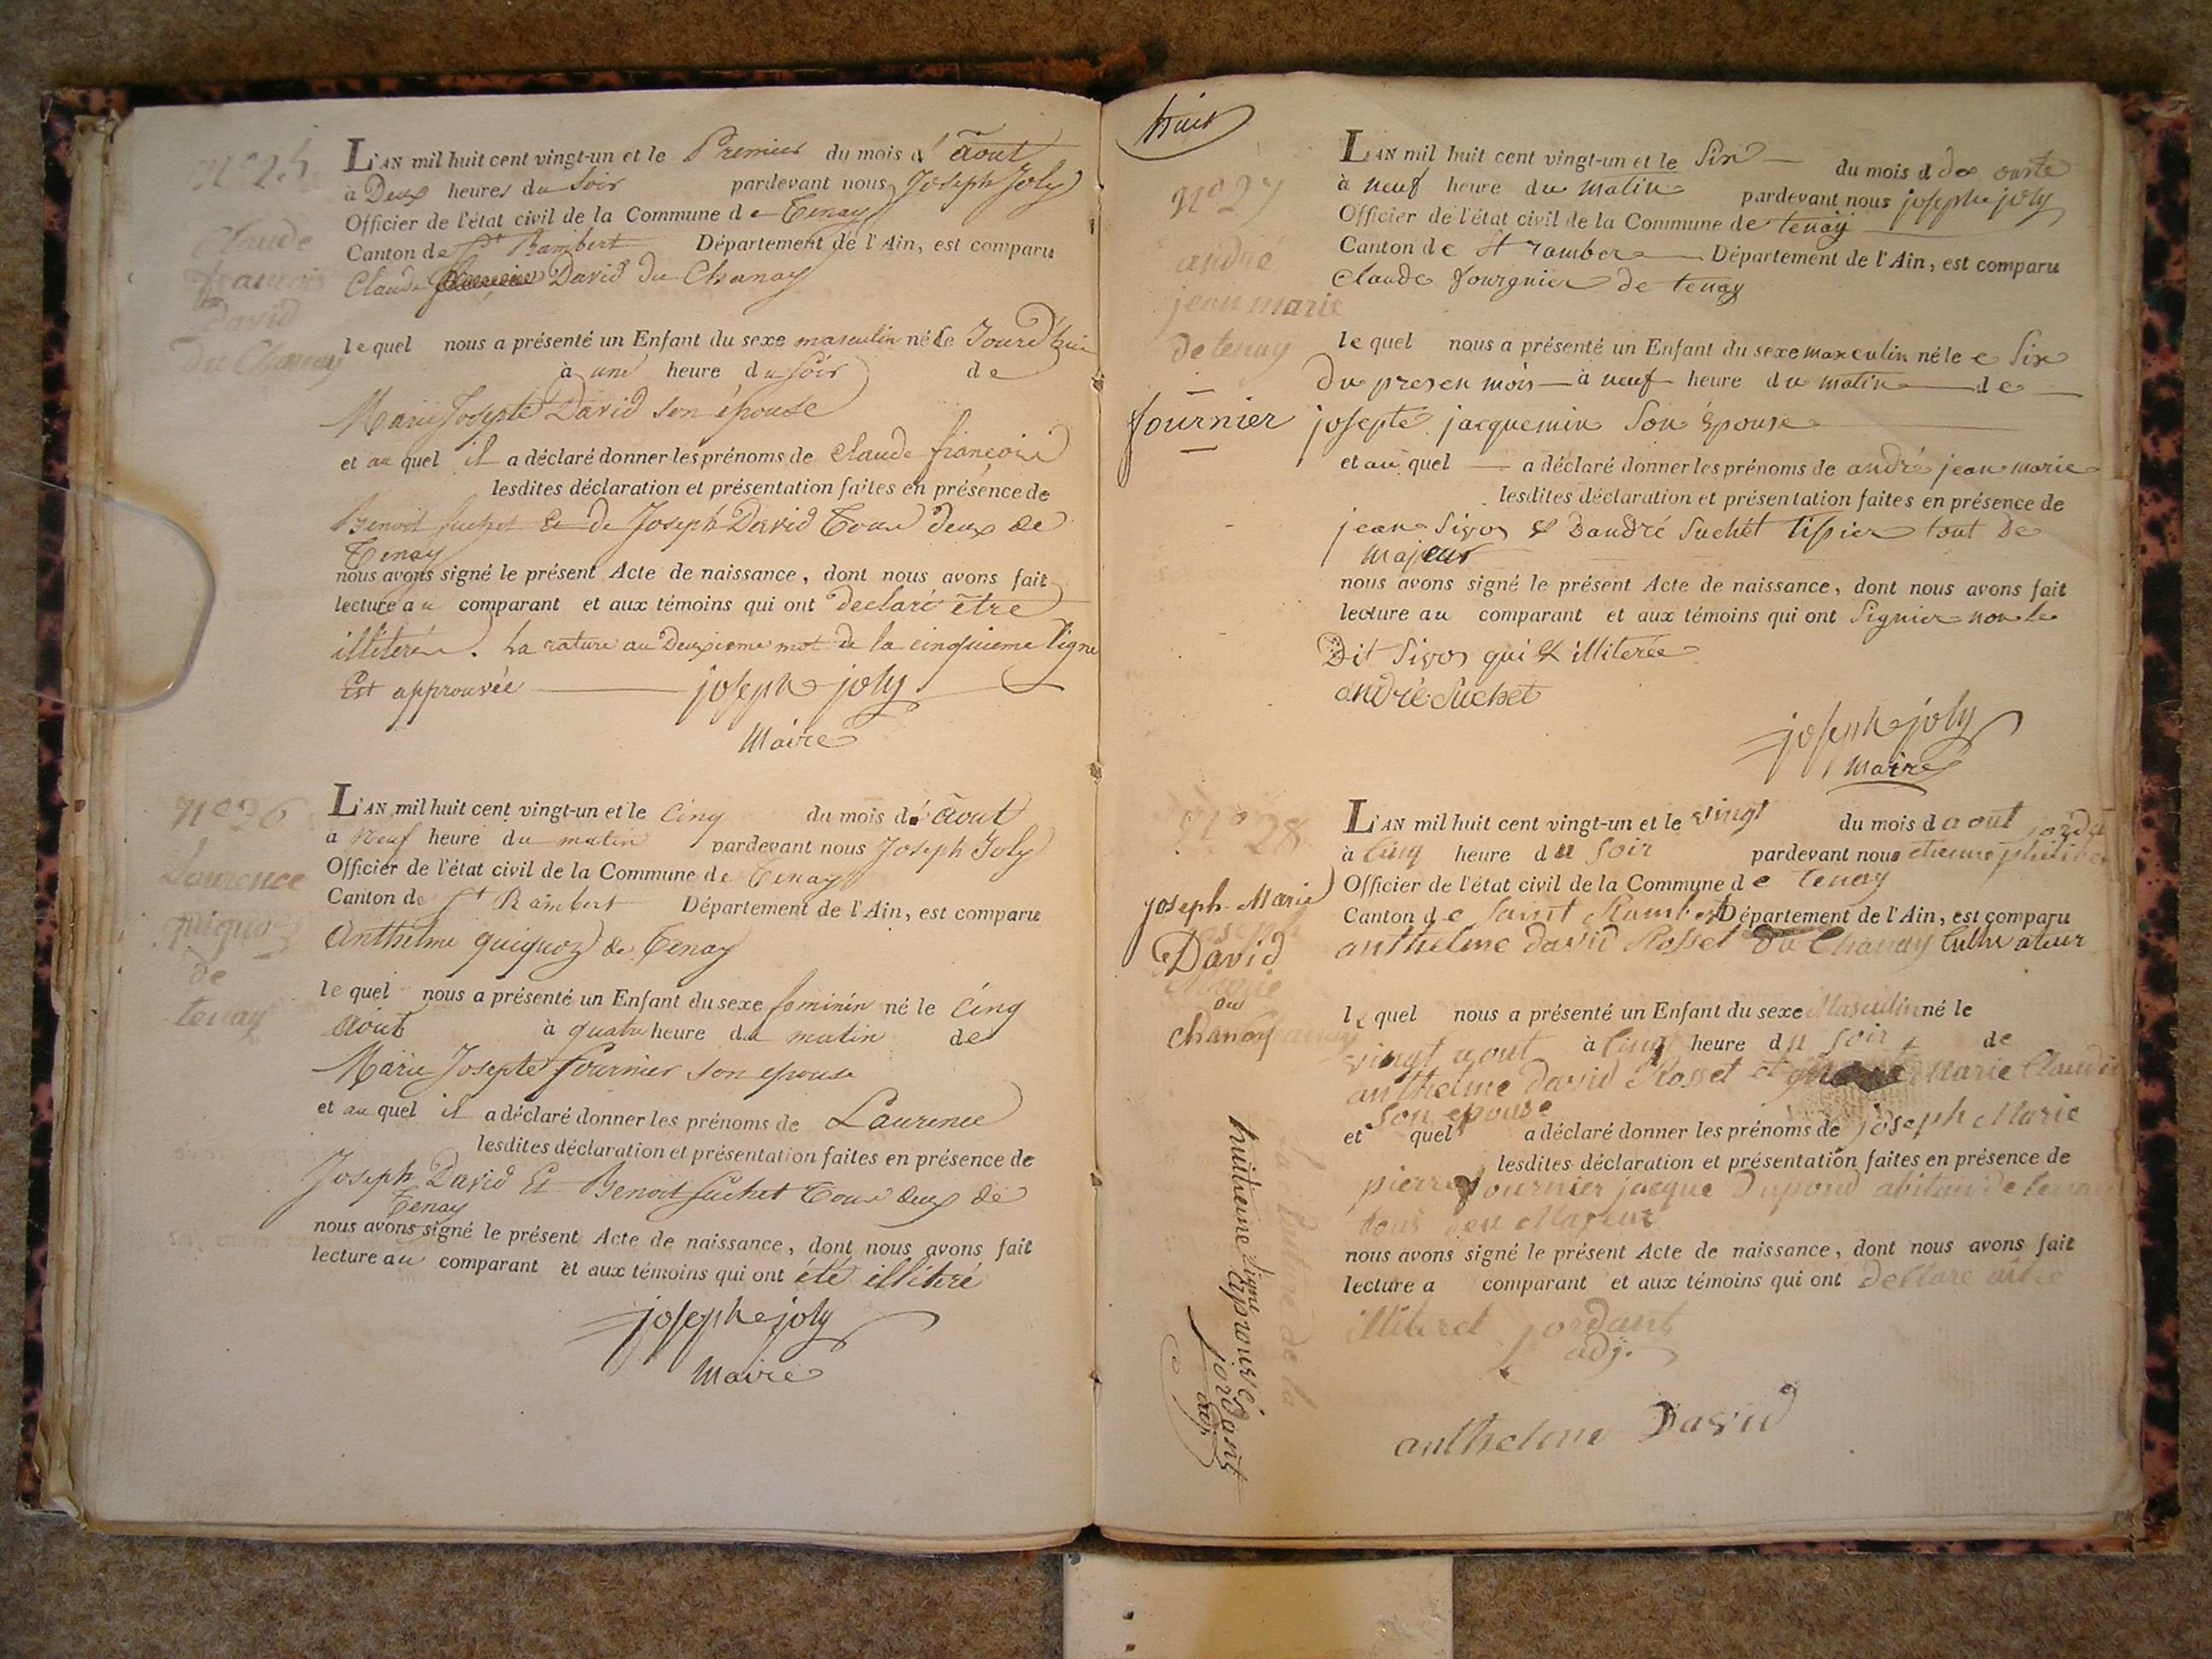 N° 25
Claude
francois
David
du Chanay
L'AN mil huit cent vingt-un et le Premier du mois d' août
à Deux heures du Soir pardevant nous Joseph Joly
Officier de l'état civil de la Commune de Tenay
Canton de St Rambert Département de l'Ain, est comparu
Claude David du Chanay
le quel nous a présenté un Enfant du sexe masculin né le Jourd'hui
à une heure du Soir de
Marie Josepte David son épouse
et au quel il a déclaré donner les prénoms de Claude françois
lesdites déclaration et présentation faites en présence de
Benoit Suchet Et de Joseph David Tous deux de
Tenay
nous avons signé le présent Acte de naissance, dont nous avons fait
lecture au comparant et aux témoins qui ont declaré être
illiteré. La rature au Deuxieme mot de la cinquieme ligne
Est approuvée joseph joly
Maire
N° 26
Laurence
quiquoz
de
tenay
L'AN mil huit cent vingt-un et le Cinq du mois d'août
a Neuf heure du matin pardevant nous Joseph Joly
Officier de l'état civil de la Commune de Tenay
Canton de St Rambert Département de l'Ain, est comparu
Anthelme quiquoz de Tenay
le quel nous a présenté un Enfant du sexe feminin né le Cinq
Août à quatre heure du matin de
Marie Josepte fournier son epouse
et au quel il a déclaré donner les prénoms de Laurence
lesdites déclaration et présentation faites en présence de
Joseph David Et Benoit Suchet Tous deux de
Tenay
nous avons signé le présent Acte de naissance, dont nous avons fait
lecture au comparant et aux témoins qui ont été illiteré
joseph joly
Maire
huit
N° 27
andré
jean marie
de tenay
fournier
L'AN mil huit cent vingt-un et le Six du mois d
à neuf heure du matin pardevant nous joseph joly
Officier de l'état civil de la Commune de tenay
Canton de St ramber Département de l'Ain, est comparu
Claude fourgnier de tenay
le quel nous a présenté un Enfant du sexe masculin né le Six
Du presen mois à neuf heure du matin de
josepte jacquemin Son Epouse
et au quel a déclaré donner les prénoms de andré jean marie
lesdites déclaration et présentation faites en présence de
jean Sivos & Dandré Suchet tisier tout De
majeur
nous avons signé le présent Acte de naissance, dont nous avons fait
lecture au comparant et aux témoins qui ont Signier non le
Dit Sivos qui & illiterée
andré Suchet
joseph joly
maire
N° 28
joseph Marie
David
du
chanay
L'AN mil huit cent vingt-un et le vingt du mois d aout
à Cinq heure du Soir pardevant nous etienne philiber
Officier de l'état civil de la Commune de tenay
Canton de Saint Rambert Département de l'Ain, est comparu
anthelme david Rosset du Chanay Cultivateur
le quel nous a présenté un Enfant du sexe Masculin né le
vingt aout à Cinq heure du Soir de
anthelme david Rosset et Marie Claudi
Son epouse
et quel a déclaré donner les prénoms de joseph Marie
lesdites déclaration et présentation faites en présence de
pierre fournier jacque Dupond abitan de tenay
tous deu Majeur
nous avons signé le présent Acte de naissance, dont nous avons fait
lecture a comparant et aux témoins qui ont declaré aitre
illiteret jordant
adj.
anthelme David
de la
huitieme ligne aprouvé
jordant
adj